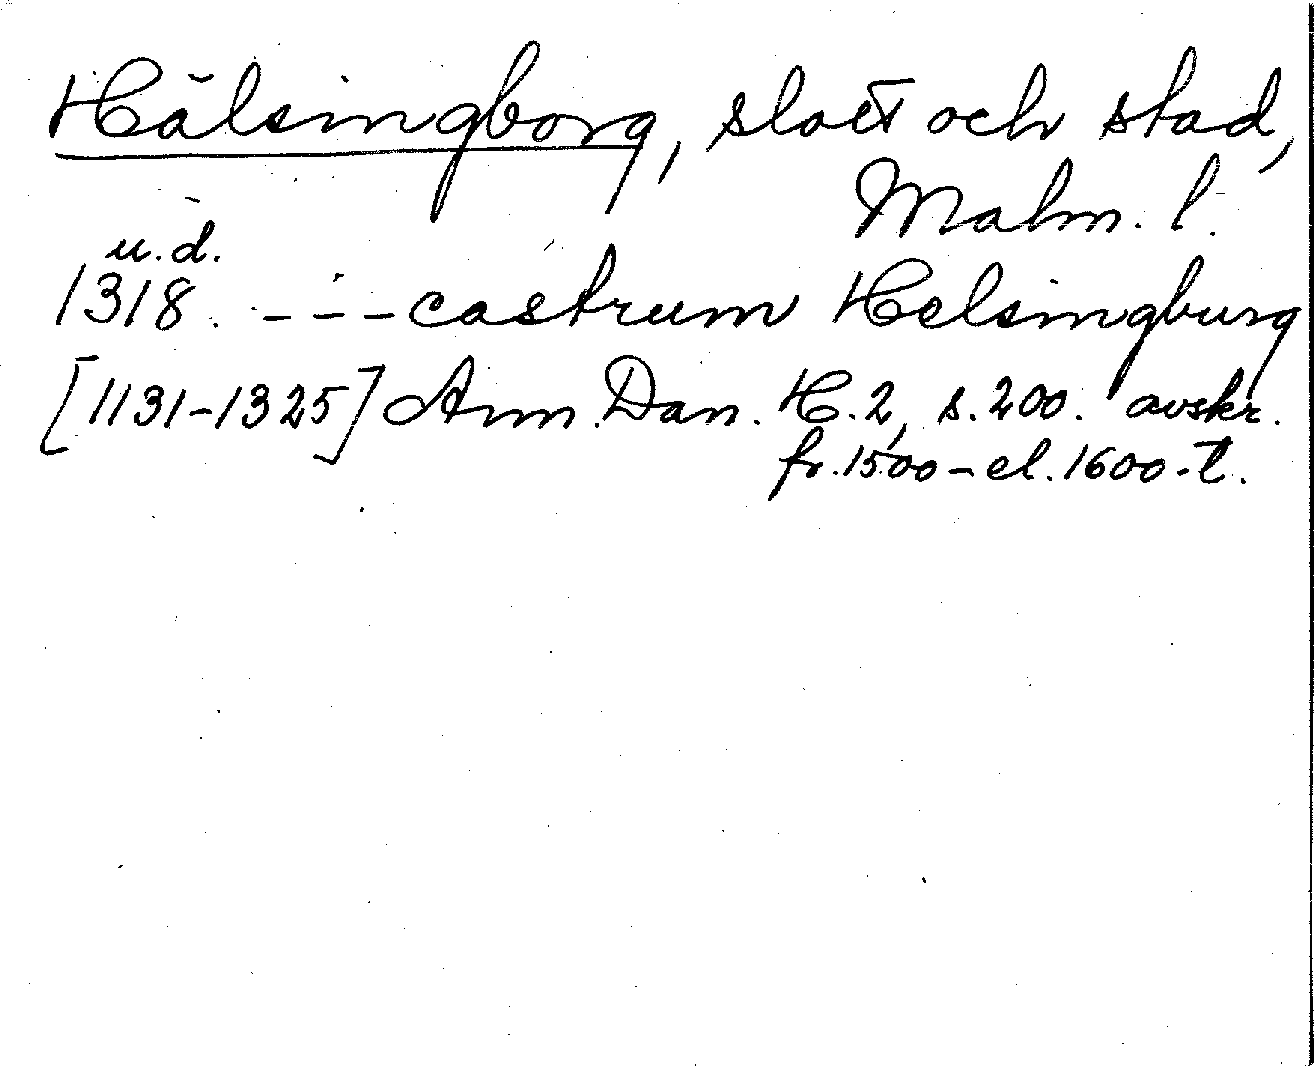 Hälsingborg, slott och stad,
Malm. l.
u.d.
1318. --- castrum Helsingburg
[1131-1325] Ann. Dan. H. 2, s. 200. avskr.
fr. 1500- el. 1600-t.